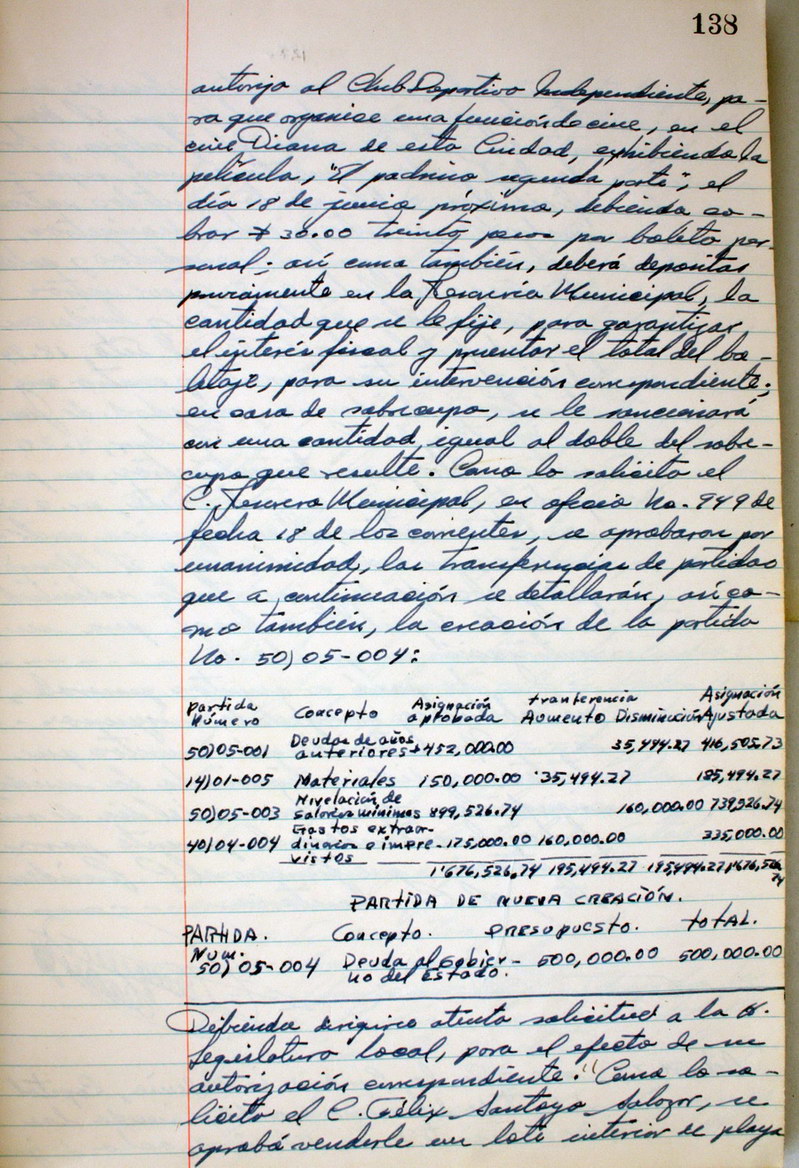 138
autorizo al Club Deportivo Independiente, pa-
ra que organice una función de cine, en el
cine Diana de esta Ciudad, exhibiendo la
película, "El padrino segunda parte", el
día 18 de junio próximo, debiendo co-
brar $ 30.00 treinta pesos por boleto per-
sonal; así como también, deberá depositar
previamente en la Tesorería Municipal, la
cantidad que se le fije, para garantizar
el interés fiscal y presentar el total del bo-
letaje, para su intervención correspondiente;
en caso de sobrecupo, se le sancionará
con una cantidad igual al doble del sobre-
cupo que resulte. Como lo solicita el
C. Tesorero Municipal, en oficio No. 949 de
fecha 18 de los corrientes, se aprobaron por
unanimidad, las transferencias de partidas
que a continuación se detallarán, así co-
mo también, la creación de la partida
No. 50)05-004:
Partida Número Concepto Asignación aprobada tranferencia Aumento Disminución Asignación Ajustada
50)05-001 Deudas de años anteriores 452,000.00 35,494.27 416,505.73
14)01-005 Materiales 150,000.00 35,494.27 185,494.27
50)05-003 Nivelación de salarios mínimos 899,526.74 160,000.00 739,526.74
40)04-004 Gastos extraor-
dinarios e impre- 175,000.00 160,000.00 335,000.00
vistos
1'676,526,74 195,494.27 195,494.27 1'676,526 74
PARTIDA DE NUEVA CREACIÓN.
PARTIDA. Concepto. PRESUPUESTO. TOTAL.
Num.
50) 05-004 Deuda al Gobier- 500,000.00 500,000.00
no del Estado.
Debiendo dirigirse atenta solicitud a la H.
Legislatura local, para el efecto de su
autorización correspondiente." Como lo so-
licita el C. Félix Santoyo Salazar, se
aprobó venderle un lote interior de playa